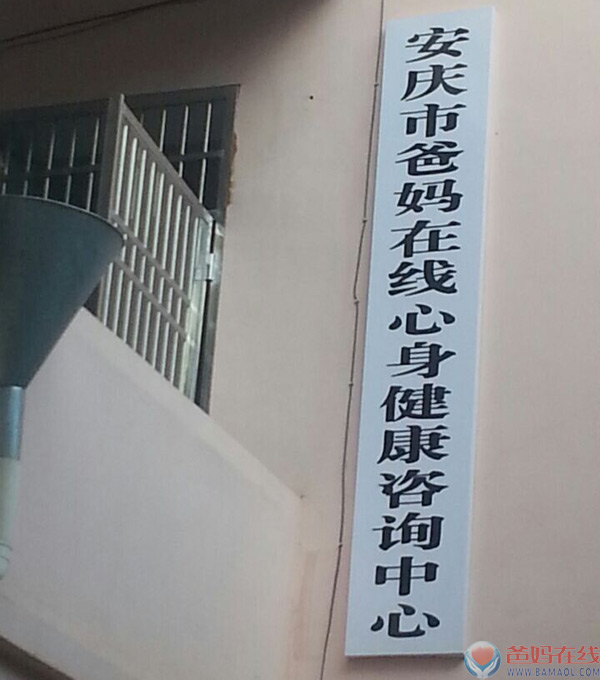 安庆市爸妈在线心身健康咨询中心
爸妈在线
WWW.BAMAOL.COM